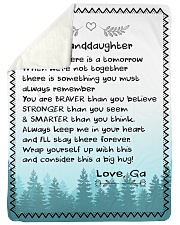 anddaughter
ere is a tomorrow
when we're not together
there is something you must
always remember
You are BRAVER than you believe
STRONGER than you seem
& SMARTER than you think.
Always keep me in your heart
and I'll stay there forever.
Wrap yourself up with this
and consider this a big hug!
Love, Ga